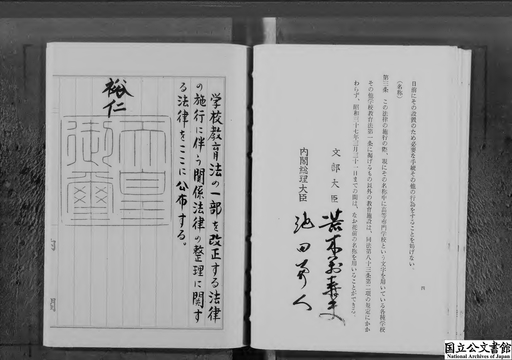 日前にその設置のため必要な手続その他の行為をすることを妨げない。
（名称）
第三条　この法律の施行の際、現にその名称中に高等専門学校という文字を用いている各種学校
その他学校教育法第一条に掲げるもの以外の教育施設は、同法第八十三条第二項の規定にかか
わらず、昭和三十七年三月三十一日までの間は、なお従前の名称を用いることができる。
文部大臣
荒木万寿夫
内閣総理大臣
池田勇人
学校教育法の一部を改正する法律
の施行に伴う関係法律の整理に関す
る法律をここに公布する。
裕仁
天皇
御璽
国立公文書館
National Archives of Japan